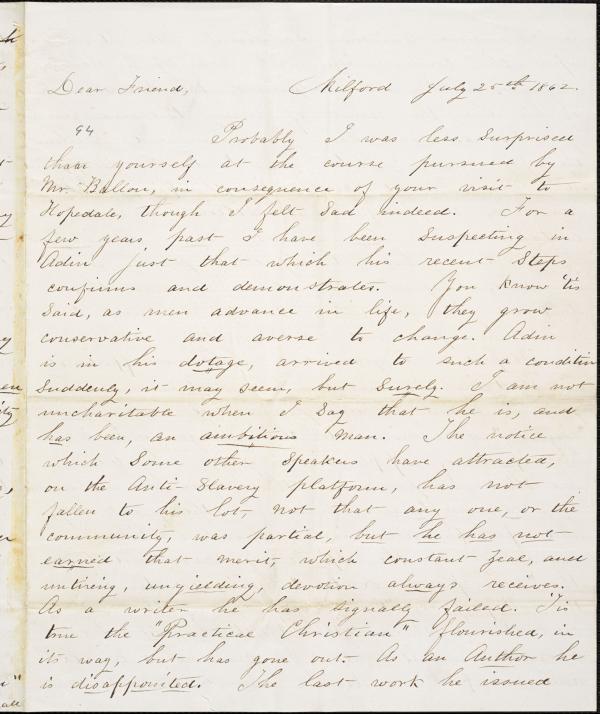 Dear Friend, Milford July 25th 1862.
94
Probably I was less surprised
than yourself at the course pursued by
Mr. Ballou, in consequence of your visit to
Hopedale, though I felt sad indeed. For a
few years past I have been suspecting in
Adin just that which his recent steps
confirms and demonstrates. You know 'tis
said, as men advance in life, they grow
conservative and averse to change. Adin
is in his dotage, arrived to such a condition
suddenly, it may seem, but surely. I am not
uncharitable when I say that he is, and
has been, an ambitious man. The notice
which some other speakers have attracted,
on the Anti-Slavery platform, has not
fallen to his lot, not that any one, or the
community, was partial, but he has not
earned that merit, which constant zeal, and
untiring, unyielding, devotion always receives.
As a writer he has signally failed. 'Tis
true the "Practical Christian" flourished, in
its way, but has gone out. As an Author he
is disappointed. The last work he issued